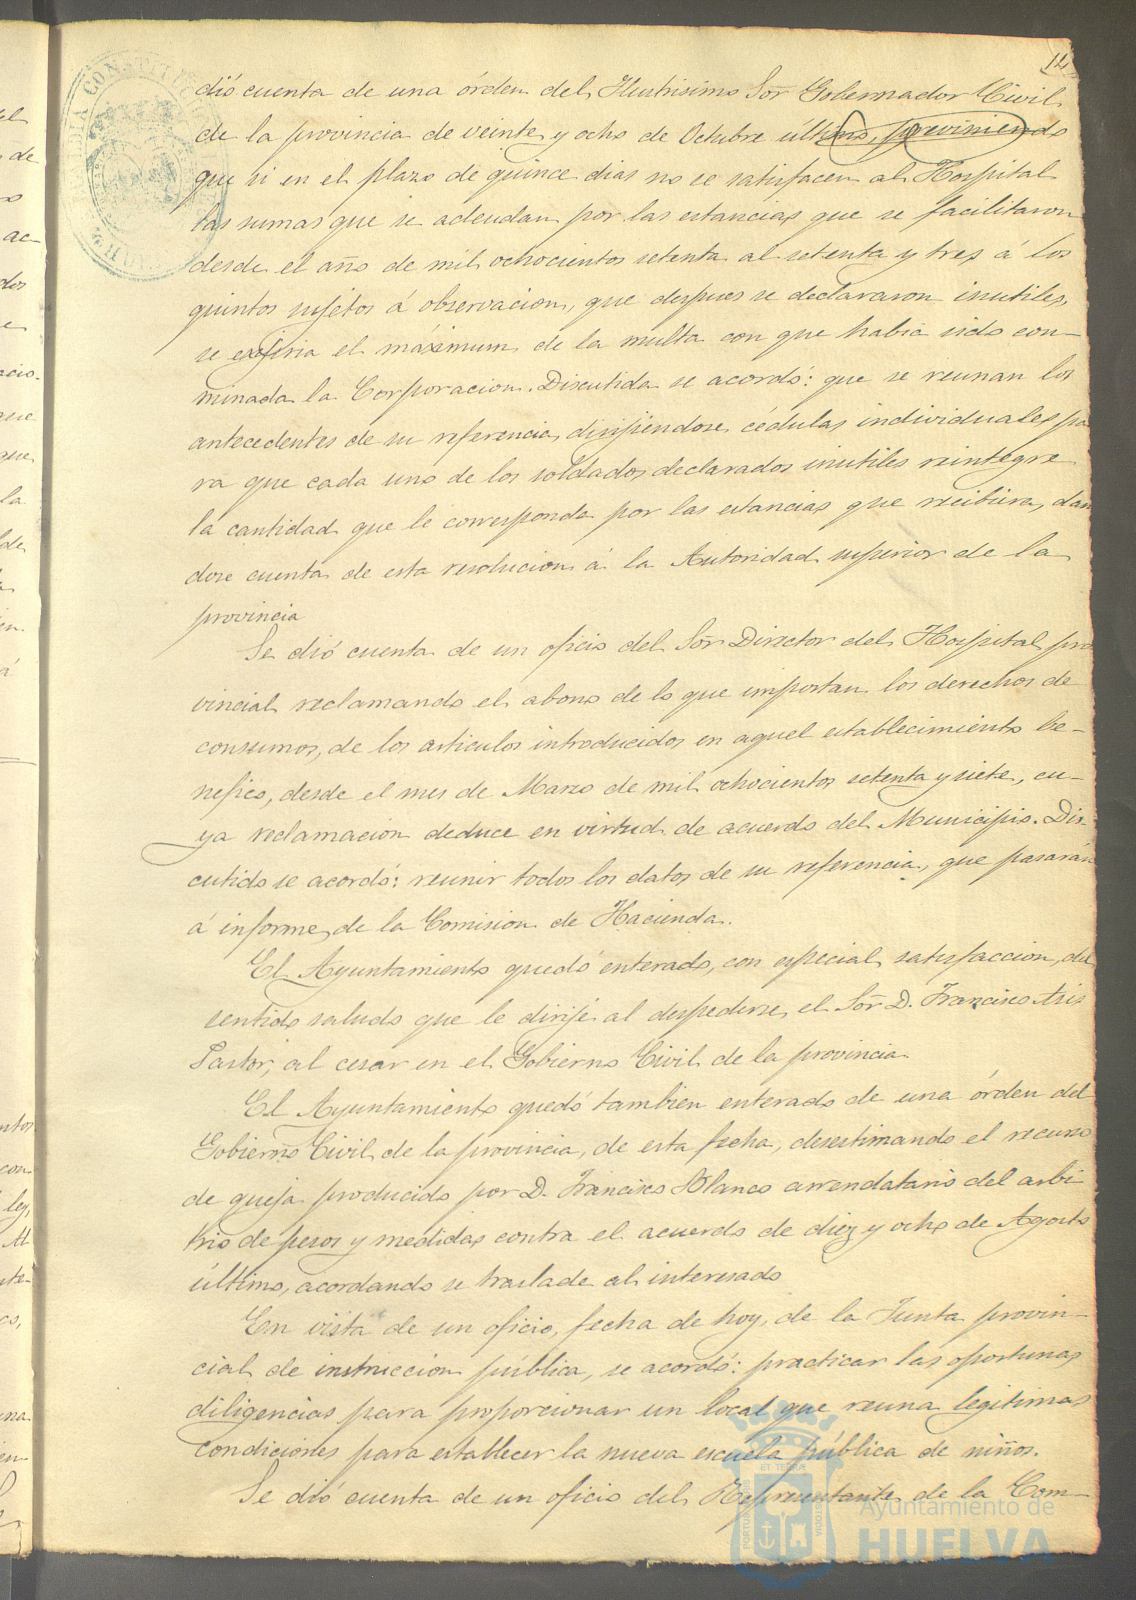 12
dió cuenta de una órden del Ilustrisimo Sor Gobernador Civil
de la provincia de veinte y ocho de Octubre ultimo, previniendo
que si en el plazo de quince dias no se satisfacen al Hospital
las sumas que se adeudan por las estancias que se facilitaron
desde el año de mil ochocientos setenta al setenta y tres á los
quintos sujetos á observacion, que despues se declararon inutiles,
se exijiria el máximum de la multa con que habia sido con-
minada la Corporacion. Discutida se acordó: que se reunan los
antecedentes de su referencia, dirijiendose cédulas individuales pa
ra que cada uno de los soldados declarados inutiles reintegre
la cantidad que le corresponda por las estancias que recibiera, dan
dose cuenta de esta resolucion á la Autoridad superior de la
provincia
Se dió cuenta de un oficio del Sor Director del Hospital pro
vincial reclamando el abono de lo que importan los derechos de
consumos, de los articulos introducidos en aquel establecimiento be-
nefico, desde el mes de Marzo de mil ochocientos setenta y siete, cu-
ya reclamacion deduce en virtud de acuerdo del Municipio. Dis-
cutido se acordó: reunir todos los datos de su referencia, que pasarán
á informe de la Comision de Hacienda.
El Ayuntamiento quedó enterado, con especial satisfaccion, del
sentido saludo que le dirije al despedirse, el Sor D. Francisco Asis
Pastor, al cesar en el Gobierno Civil de la provincia
El Ayuntamiento quedó tambien enterado de una órden del
Gobierno Civil de la provincia, de esta fecha, desestimando el recurso
de queja producido por D. Francisco Blanco arrendatario del arbi
trio de pesos y medidas contra el acuerdo de diez y ocho de Agosto
último, acordando se traslade al interesado
En vista de un oficio, fecha de hoy, de la Junta provin-
cial de instruccion pública, se acordó: practicar las oportunas
diligencias para proporcionar un local que reuna legitimas
condiciones para establecer la nueva escuela pública de niños.
Se dió cuenta de un oficio del Representante de la Com-
Ayuntamiento de
HUELVA